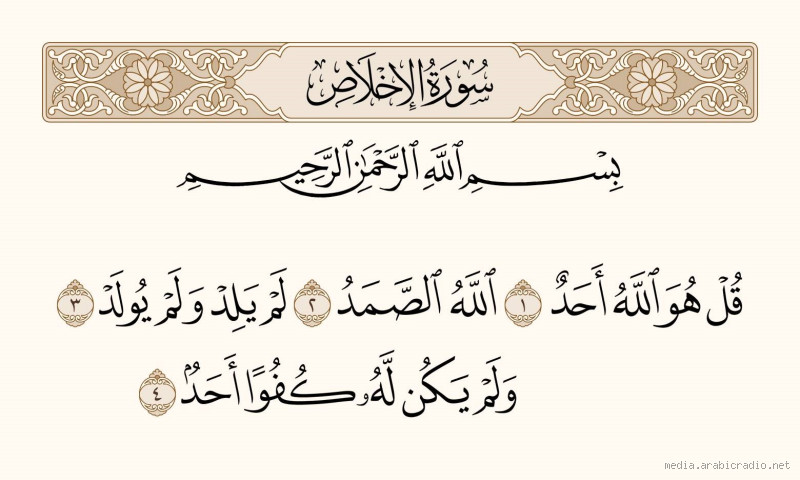 سُورَةُ الإِخْلَاصِ
بِسْمِ ٱللَّهِ ٱلرَّحْمَٰنِ ٱلرَّحِيمِ
قُلْ هُوَ ٱللَّهُ أَحَدٌ ١ ٱللَّهُ ٱلصَّمَدُ ٢ لَمْ يَلِدْ وَلَمْ يُولَدْ ٣
وَلَمْ يَكُن لَّهُۥ كُفُوًا أَحَدٌۢ ٤
media.arabicradio.net